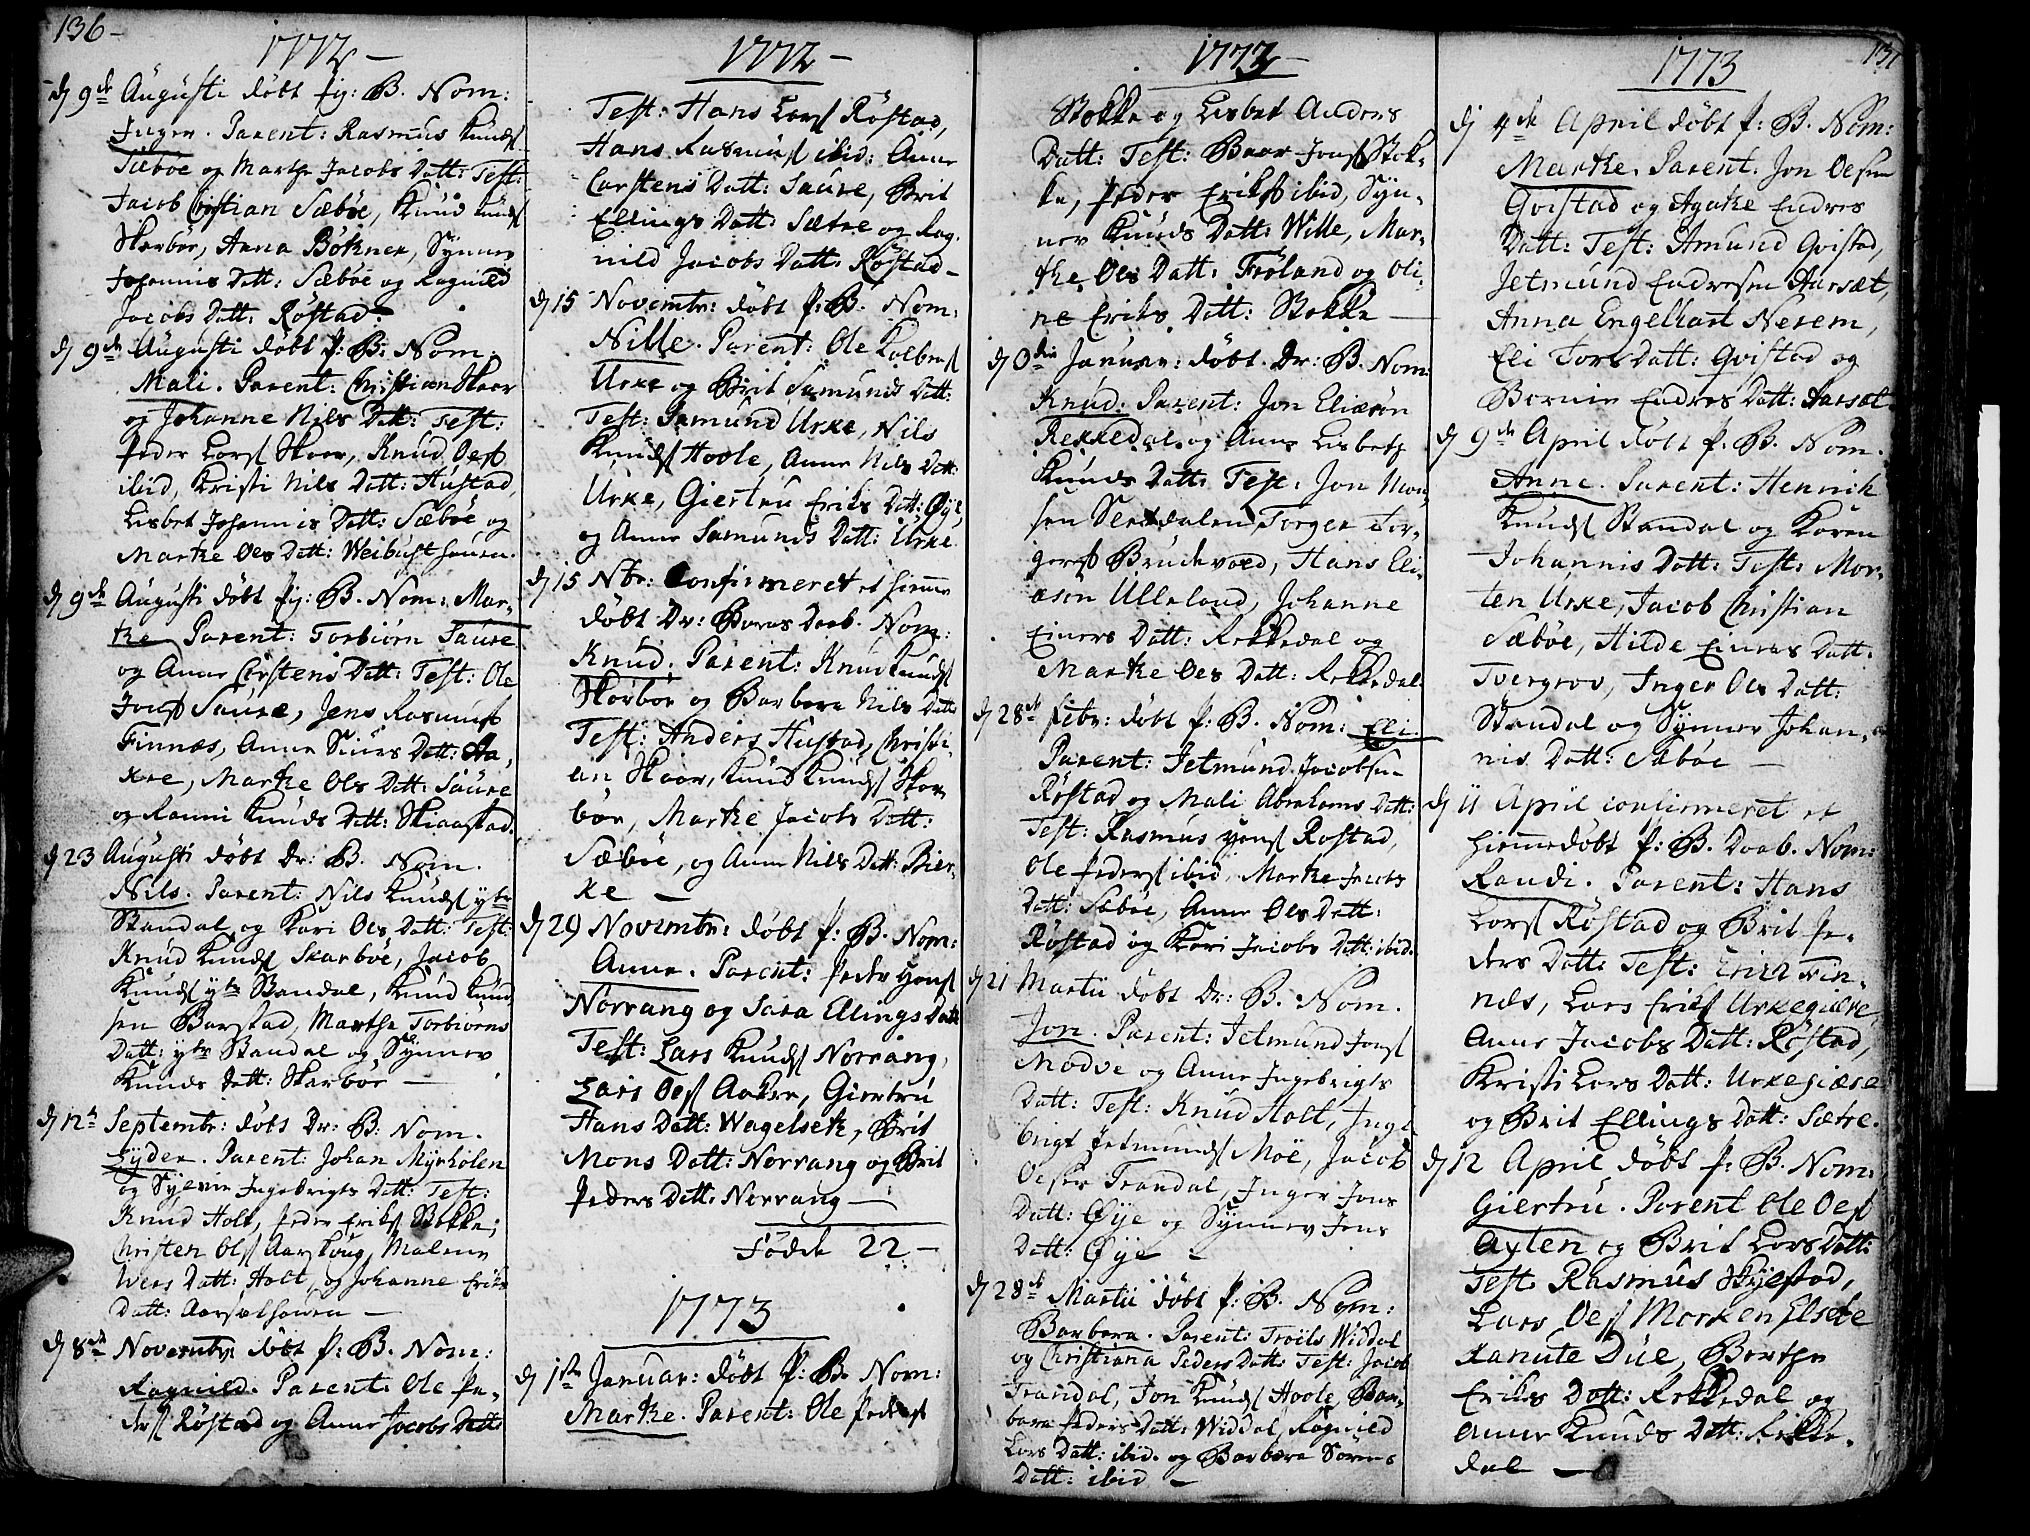 136-
1772-
d 9de Augusti døbt Pj: B. Nom:
Inger. Parent: Rasmus Knuds
Sæbøe og Marthe Jacobs Datt: Test:
Jacob Christian Sæbøe, Knud Knuds
Skarbøe, Anna Bökner, Synnev
Johannis Datt: Sæbøe og Ragnild
Jacobs Datt: Røstad
d 9de Augusti døbt P: B: Nom.
Mali. Parent: Christian Skaar
og Johanne Nils Datt: Test:
Peder Lars Skaar, Knud Oes
ibid, Kristi Nils Datt: Hustad,
Lisbet Johannis Datt: Sæbøe og
Marthe Oes Datt: Weibusthouen.
d 9de Augusti døbt Pj: B. Nom: Mar-
the Parent: Torbiørn Saure
og Anne Carstens Datt: Test: Ole
Jons Saure, Jens Rasmus
Finnæs, Anne Siurs Datt: Aa-
kre, Marthe Ols Datt: Saure
og Ranni Knuds Datt: Skiaastad.
d 23 Augusti døbt Dr: B. Nom.
Nils. Parent: Nils Knuds ytr
Standal og Kari Oes Datt: Test:
Knud Knuds Skarbøe, Jacob
Knuds ytr Standal, Knud Knud
sen Barstad, Marthe Torbiørns
Datt: ytr Standal og Synnev
Knuds Datt: Skarbøe
d 12te Septembr: døbt Dr: B: Nom.
Syder. Parent: Johan Myrholen
og Syevin Ingebrigts Datt: Test:
Knud Holt, Peder Eriks Stokke,
Christen Ols Aarskoug, Malene
Ivers Datt: Holt, og Johanne Eriks
Datt: Aarsælhouen
d 8de Novembr: døbt P: B. Nom:
Ragnild. Parent: Ole Pe-
ders Røstad og Anne Jacobs Datt:
1772-
Test: Hans Lars Røstad,
Hans Rasmus ibid: Anne
Carstens Datt: Saure, Brit
Ellings Datt: Sætre og Rag-
nild Jacobs Datt: Røstad-
d 15 Novembr: døbt P: B. Nom:
Nille. Parent: Ole Kolbens
Urke og Brit Samunds Datt:
Test: Samund Urke, Nils
Knuds Hoole, Anne Nils Datt:
Urke, Giertru Eriks Datt: Øye
og Anne Samunds Datt: Urke
d 15 Nbr: Confirmeret et hieme
døbt Dr: Barns Daab. Nom:
Knud. Parent: Knud Knuds
Skorbøe og Barbara Nils Datt:
Test: Anders Hustad, Christi-
an Skaar, Knud Knuds Skar
bøe, Marthe Jacobs Datt:
Sæbøe, og Anne Nils Datt: Bier-
ke
d 29 Novembr: døbt P: B. Nom:
Anne. Parent: Peder Hans
Norrang og Sara Ellings Datt
Test: Lars Knuds Norrang,
Lars Oes Aakre, Giertru
Hans Datt: Wagelsetr, Brit
Mons Datt: Norrang og Brit
Peders Datt: Norrang
Fødde 22-
1773
d 1ste Januar: døbt P: B. Nom:
Marthe. Parent: Ole Peders
1773-
Stokke og Lisbet Anders
Datt: Test: Baar Jons Stok-
ke, Peder Eriks ibid, Syn-
nev Knuds Datt: Wille, Mar-
the Ols Datt: Frøland og Oli-
ne Eriks Datt: Stokke
d 6de Januar: døbt Dr: B. Nom:
Knud: Parent: Jon Eliasøn
Rekkedal og Anne Lisbeth
Knuds Datt: Test: Jon Mon-
sen Sletdalen, Torger Tor-
gers Brudevold, Hans Eli-
asen Ulleland, Johanne
Einers Datt: Rekkedal og
Marthe Oes Datt: Rekkedal
d 28de Febr: døbt P: B. Nom: Eli.
Parent: Jetmund Jacobsen
Røstad og Mali Abrahams Datt:
Test: Rasmus Hans Røstad,
Ole Peders ibid, Marthe Jacobs
Datt: Sæbøe, Anne Ols Datt:
Røstad og Kari Jacobs Datt: ibid.
d 21 Martii døbt Dr: B. Nom.
Jon. Parent: Jetmund Jons
Modve og Anne Ingebrigts
Datt: Test: Knud Holt, Inge
brigt Jetmunds Moe, Jacob
Oesen Trandal, Inger Jons
Datt: Øye og Synnev Jens
Datt: Øye
d 28de Martii døbt P: B. Nom:
Barbara. Parent: Troils Widdal
og Christiana Peders Datt: Test: Jacob
Trandal, Jon Knuds Hoole, Bar-
bara Peders Datt: Widdal, Ragnild
Lars Datt: ibid. og Barbara Sørens
Datt: ibid
137
1773
d 4de April døbt P: B. Nom:
Marthe. Parent. Jon Oesen
Qvistad og Agathe Endres
Datt: Test: Amund Qvistad,
Jetmund Endresen Aarsæt,
Anna Engelhart Nerem,
Eli Tors Datt: Qvistad og
Bernin Endres Datt: Aarsæt
d 9de April døbt P: B. Nom.
Anne. Parent: Henrich
Knuds Standal og Karen
Johannis Datt: Test: Mor-
ten Urke, Jacob Christian
Sæbøe, Hilde Einers Datt:
Tvergrov, Inger Ols Datt:
Standal og Synnev Johan-
nis Datt: Sæbøe
d 11 April confirmeret et
hiemedøbt P: B. Daab. Nom:
Randi. Parent: Hans
Lars Røstad og Brit Pe-
ders Datt: Test: Erich Fin-
næs, Lars Eriks Urkegiære,
Anne Jacobs Datt: Røstad,
Kristi Lars Datt: Urkegiære
og Brit Ellings Datt: Sætre.
d 12 April døbt P: B. Nom:
Giertru. Parent Ole Oes
Ayten og Brit Lars Datt:
Test: Rasmus Skylstad,
Lars Oes Marken Elsebe
Kanute Due, Berthe
Eriks Datt: Rekkedal og
Anne Knuds Datt: Rekke-
dal